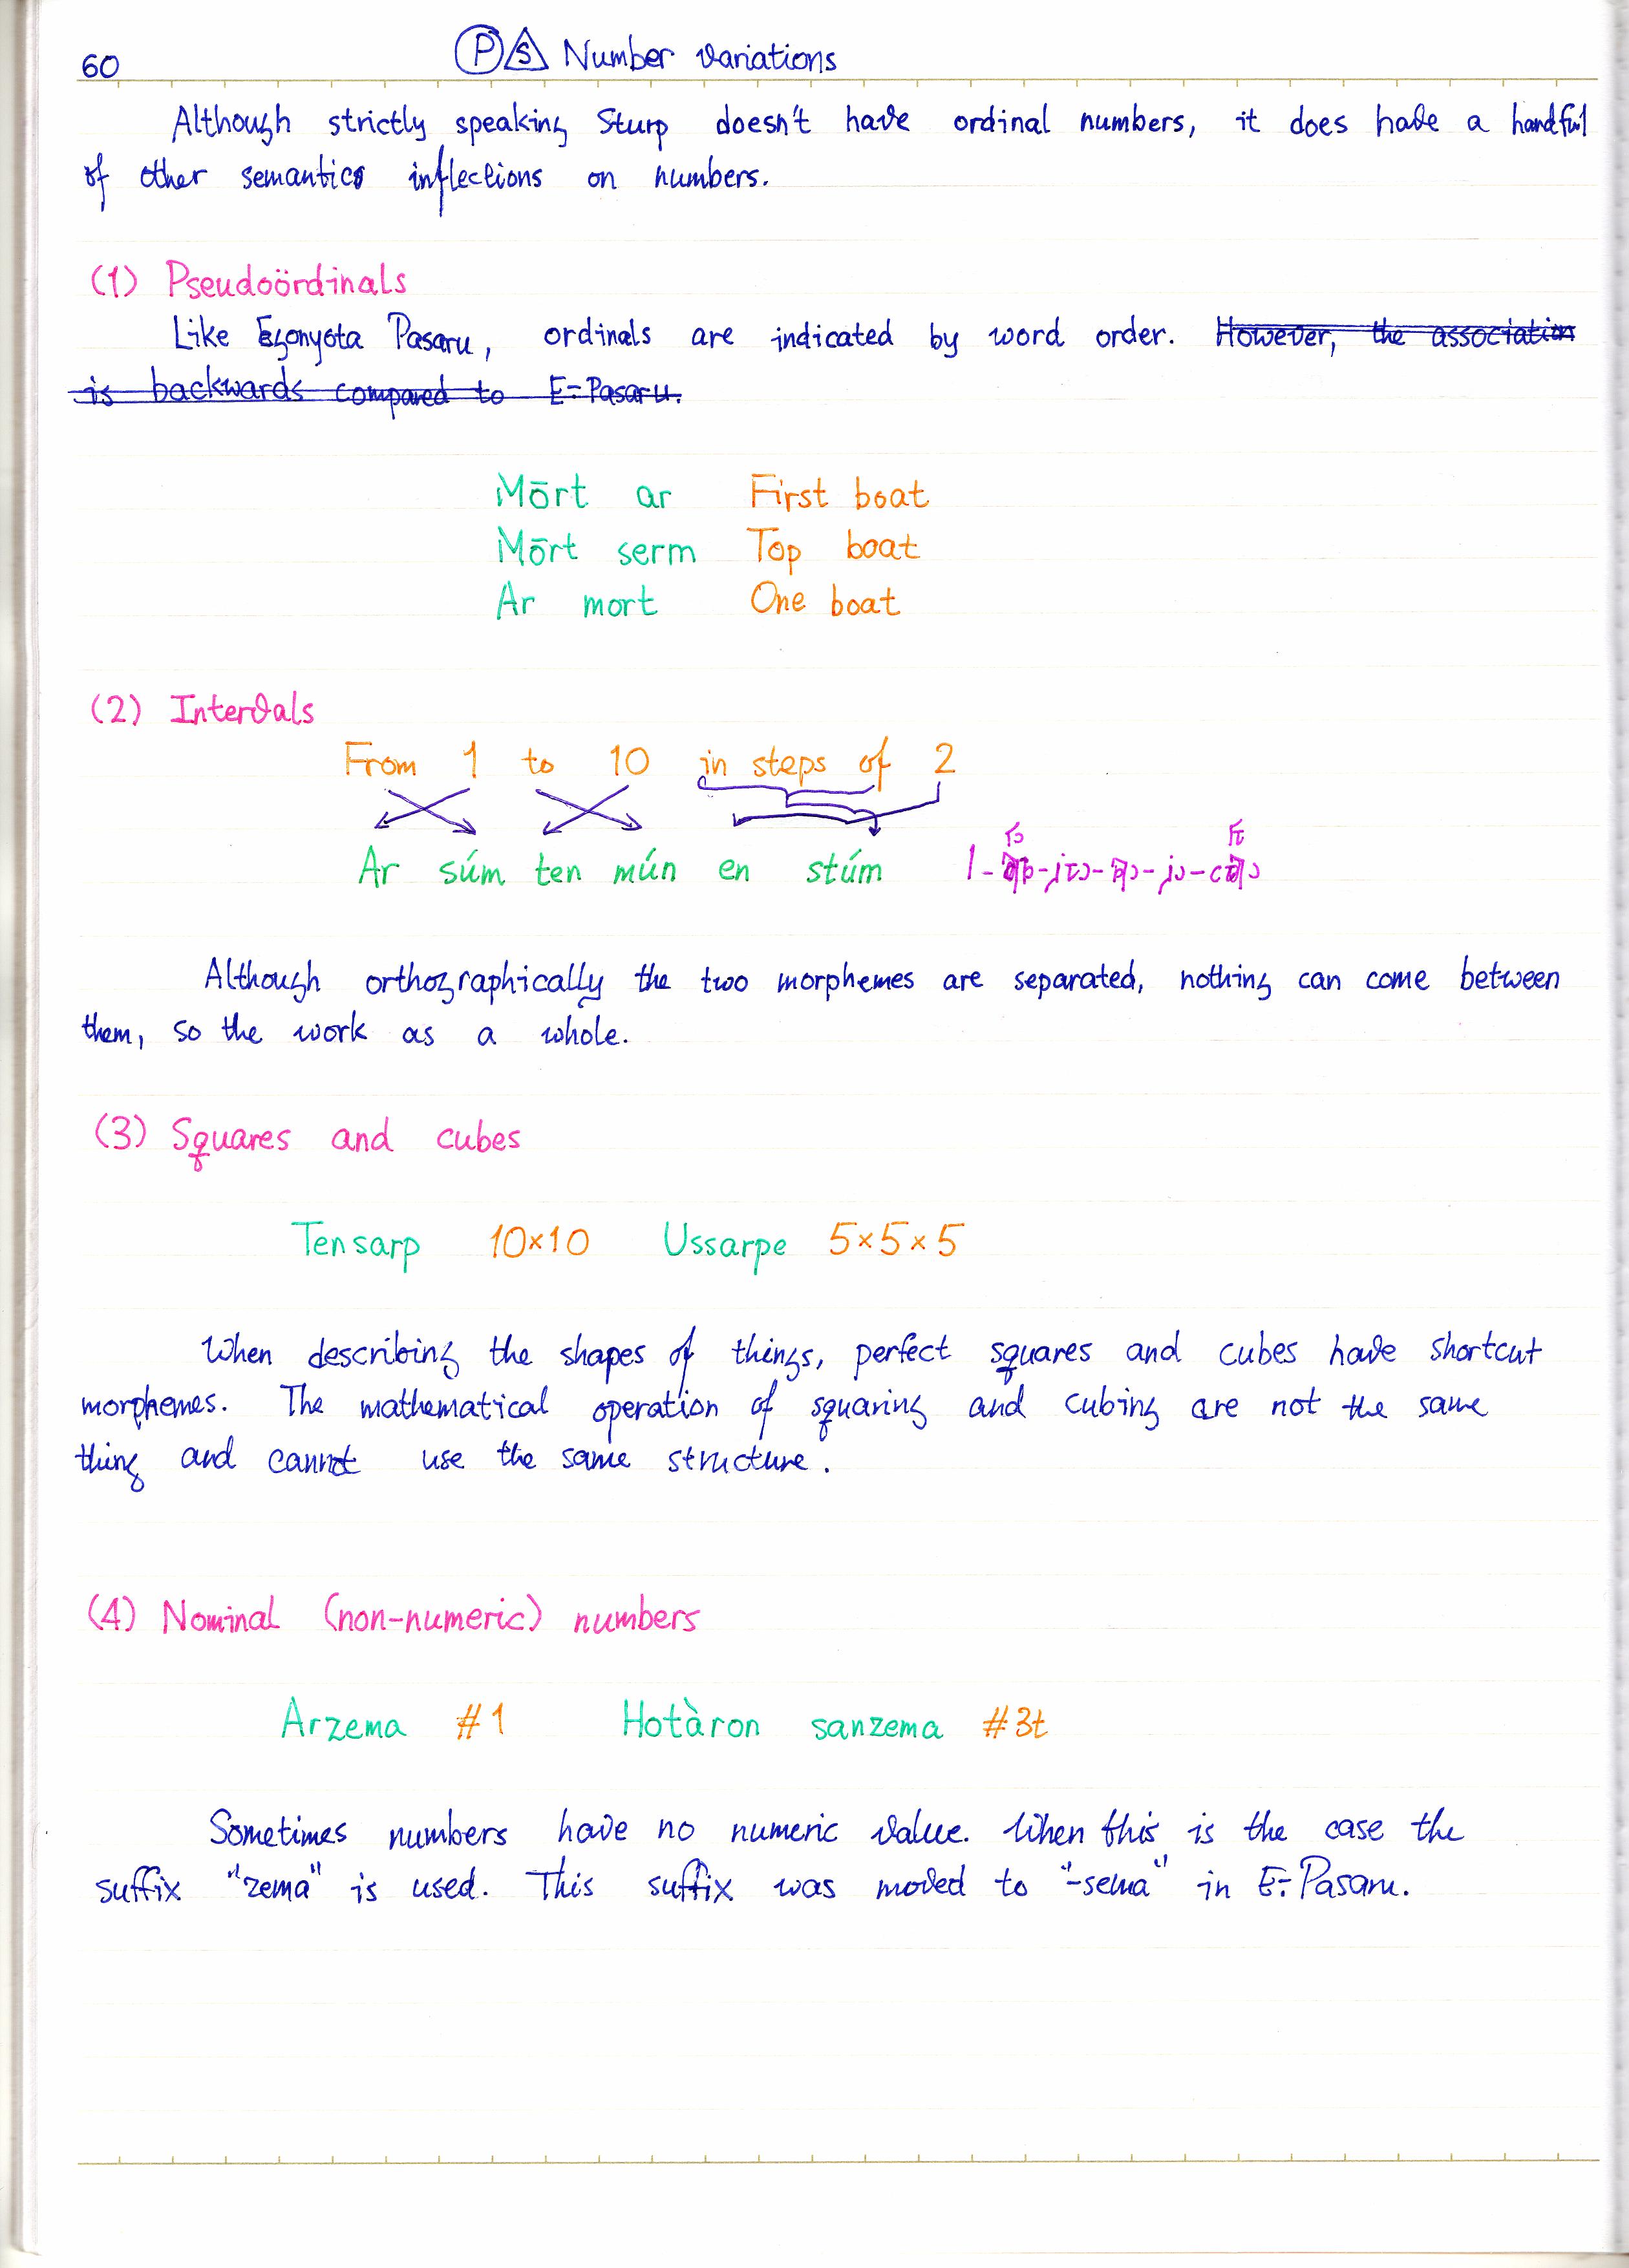 60
PS Number variations
Although strictly speaking Sturp doesn't have ordinal numbers, it does have a handful
of other semantics inflections on numbers.
(1) Pseudoördinals
Like Egonyota Pasaru, ordinals are indicated by word order. However, the association
is backwards compared to E-Pasaru.
Mōrt ar First boat
Mōrt serm Top boat
Ar mort One boat
(2) Intervals
From 1 to 10 in steps of 2
Ar súm ten mún en stúm
Although orthographically the two morphemes are separated, nothing can come between
them, so the work as a whole.
(3) Squares and cubes
Tensarp 10×10 Ussarpe 5×5×5
When describing the shapes of things, perfect squares and cubes have shortcut
morphemes. The mathematical operation of squaring and cubing are not the same
thing and cannot use the same structure.
(4) Nominal (non-numeric) numbers
Arzema #1 Hotàron sanzema #3t
Sometimes numbers have no numeric value. When this is the case the
suffix "zema" is used. This suffix was moved to "-sema" in E-Pasaru.